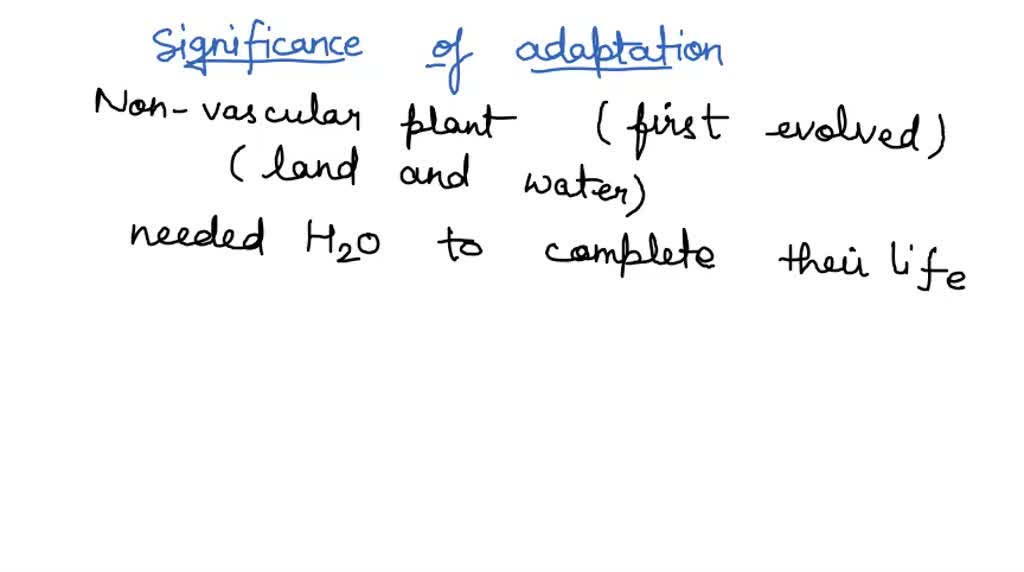 Significance of adaptation
Non-vascular plant (first evolved)
(land and water)
needed H2O to complete their life